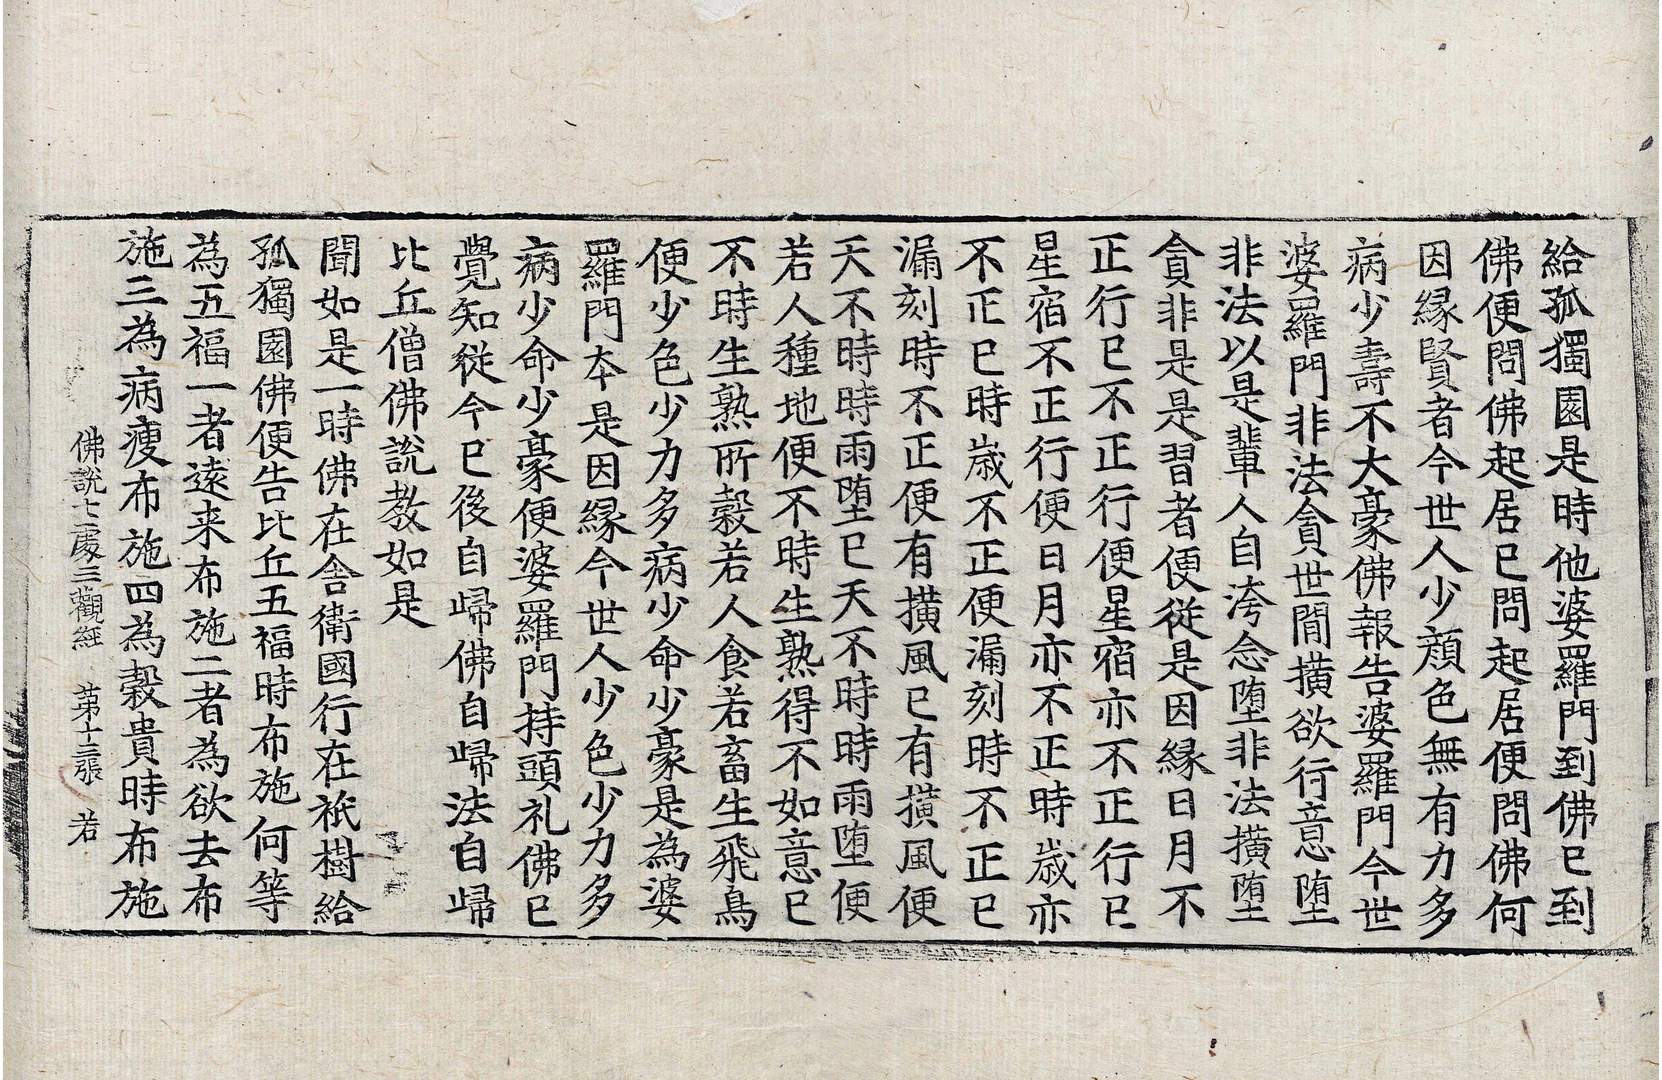 給孤獨園是時他婆羅門到佛已到
佛便問佛起居已問起居便問佛何
因緣賢者今世人少顔色無有力多
病少壽不大豪佛報告婆羅門今世
婆羅門非法貪世間撗欲行意堕
非法以是輩人自洿念堕非法撗堕
貪非是是習者便従是因緣日月不
正行已不正行便星宿亦不正行已
星宿不正行便日月亦不正時歲亦
不正已時歲不正便漏刻時不正已
漏刻時不正便有撗風已有撗風便
天不時時雨堕已天不時時雨堕便
若人種地便不時生熟得不如意已
不時生熟所穀若人食若畜生飛鳥
便少色少力多病少命少豪是為婆
羅門夲是因緣今世人少色少力多
病少命少豪便婆羅門持頭礼佛已
覺知従今已後自歸佛自歸法自歸
比丘僧佛說教如是
聞如是一時佛在舎衛國行在祇樹給
孤獨園佛便告比丘五福時布施何等
為五福一者遠来布施二者為欲去布
施三為病瘦布施四為穀貴時布施
佛說七處三觀経 第十三張 若